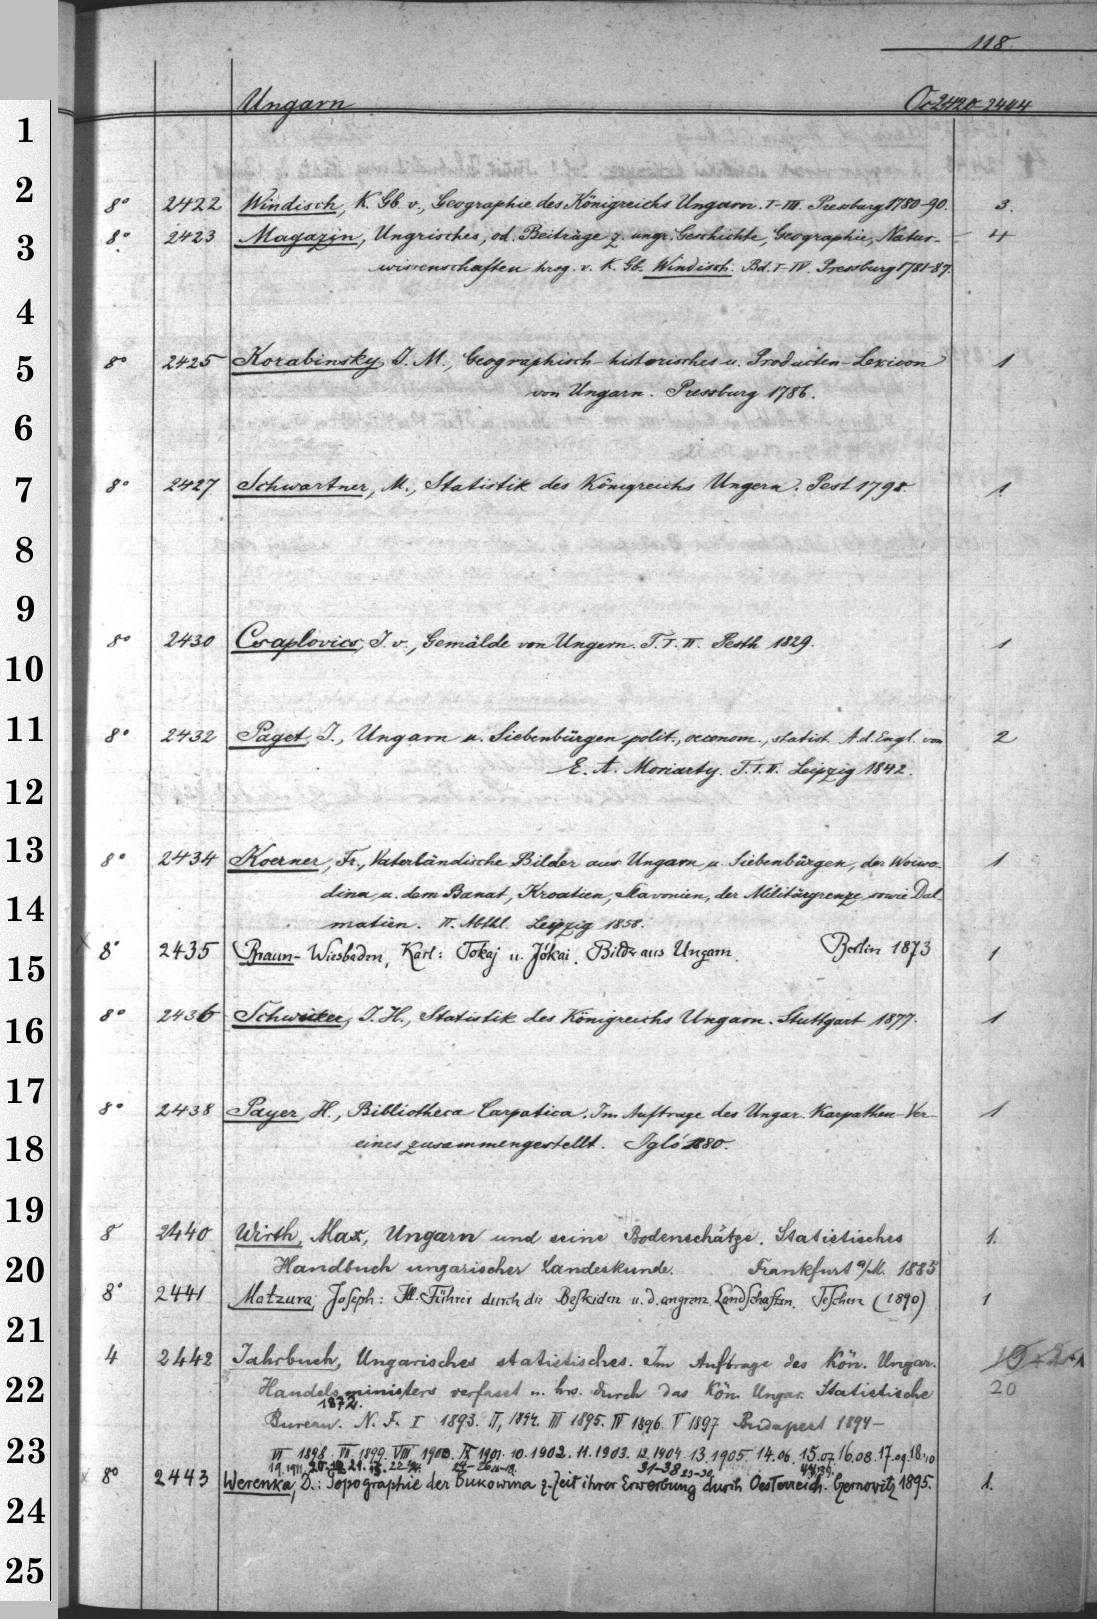 118.
Ungarn Oc 2420-2444
1
2
8° 2422 Windisch, K. Gb. v., Geographie des Königreichs Ungarn. I-III. Pressburg 1780-90. 3.
3
8° 2423 Magazin, Ungrisches, od. Beiträge z. ungr. Geschichte, Geographie, Natur- 4
wissenschaften hrsg. v. K. Gb. Windisch. Bd. I-IV. Pressburg 1781-87.
4
5
8° 2425 Korabinsky, J. M., Geographisch-historisches u. Producten-Lexicon 1
von Ungarn. Pressburg 1786.
6
7
8° 2427 Schwartner, M., Statistik des Königreichs Ungern. Pest 1798. 1
8
9
8° 2430 Csaplovics, J. v., Gemälde von Ungern. T. I. II. Pesth 1829. 1
10
11
8° 2432 Paget, J., Ungarn u. Siebenbürgen polit., oeconom., statist. A. d. Engl. von 2
E. A. Moriarty. T. I. II. Leipzig 1842.
12
13
8° 2434 Koerner, Fr., Vaterländische Bilder aus Ungarn u. Siebenbürgen, der Woiwo- 1
dina, u. dem Banat, Kroatien, Slavonien, der Militärgrenze, sowie Dal-
14
matien. II. Abthl. Leipzig 1858.
8° 2435 Braun-Wiesbaden, Karl: Tokaj u. Jókai. Bilder aus Ungarn. Berlin 1873 1
15
16
8° 2436 Schwicker, J. H., Statistik des Königreichs Ungarn. Stuttgart 1877. 1
17
8° 2438 Payer, H., Bibliotheca Carpatica. Im Auftrage des Ungar. Karpathen-Ver- 1
18
eines zusammengestellt. Igló 1880.
19
8 2440 Wirth, Max, Ungarn und seine Bodenschätze. Statistisches 1.
20
Handbuch ungarischer Landeskunde. Frankfurt a/M. 1885
8° 2441 Matzura, Joseph: Ill. Führer durch die Beskiden u. d. angrenz. Landschaften. Teschen (1890) 1
21
4 2442 Jahrbuch, Ungarisches statistisches. Im Auftrage des Kön. Ungar.
22
Handelsministers verfasst u. hrs. durch das Kön. Ungar. Statistische 20
1872.
Bureau. N. F. I 1893. II, 1894. III 1895. IV 1896. V 1897 Budapest 1894-
23
VI 1898. VII. 1899. VIII 1900. IX 1901. 10. 1902. 11. 1903. 12. 1904. 13. 1905. 14. 06. 15. 07. 16. 08. 17. 09. 18. 10
19. 1911. 31-38
8° 2443 Werenka, D.: Topographie der Bukowina z. Zeit ihrer Erwerbung durch Oesterreich. Czernovitz 1895. 1.
24
25